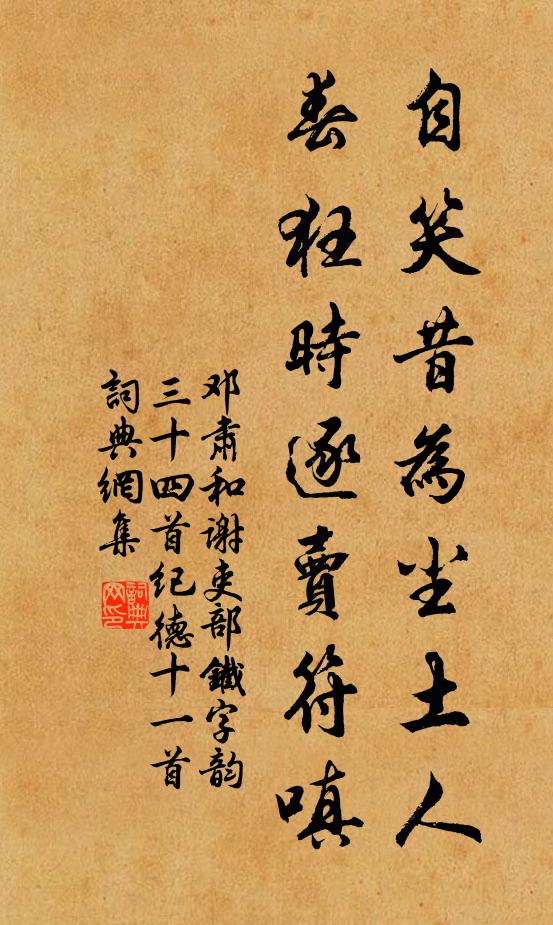 自笑昔為坐土人
春狂時逐賣符嗔
邓肅和谢吏部鐵字韵
三十四首纪德十一首
詞典網集
詞典網印